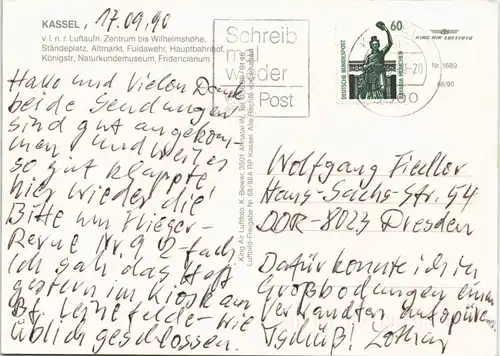 KASSEL, 17.09.90
v. l. n. r. Luftaufn. Zentrum bis Wilhelmshöhe,
Ständeplatz, Altmarkt, Fuldawehr, Hauptbahnhof,
Königstr, Naturkundemuseum, Fridericianum
Hallo und Vielen Dank
beide Sendungen
sind gut angekom-
men und weil es
so gut klappte
hier wieder die
Bitte um Flieger-
Revue Nr. 9 2-fach
Ich sah das Heft
gestern im Kiosk am
Bf. Leinefelde - wie
üblich geschlossen.
King Air Luftfoto K. Brewer, 3501 Ahnatal-W. Tel.
Luftbild-Freigabe Nr. RP Kassel. Alle Rechte vorbehalten
Schreib
mal
wieder
Post
60
DEUTSCHE BUNDESPOST
BAVARIA MÜNCHEN
KING AIR LUFTFOTO
Nr. 1689
68/90
Wolfgang Fiedler
Hans-Sachs-Str. 54
DDR-8023 Dresden
Dafür konnte ich in
Großbodungen einen
Verwandten aufspüren
Tschüß! Lothar